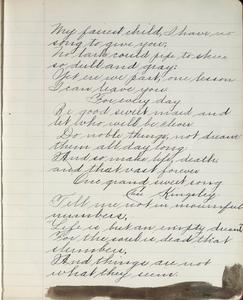 My fairest child, I have no
song to give you;
No lark could pipe to skies
so dull and gray;
Yet ere we part, one lesson
I can leave you
For every day
Be good sweet maid and
let who will be clever
Do noble things, not dream
them all day long
And so make life, death
and that vast forever
One grand sweet song
Kingsley
Tell me not in mournful
numbers,
Life is but an empty dream
For the soul is dead that
slumbers,
And things are not
what they seem.